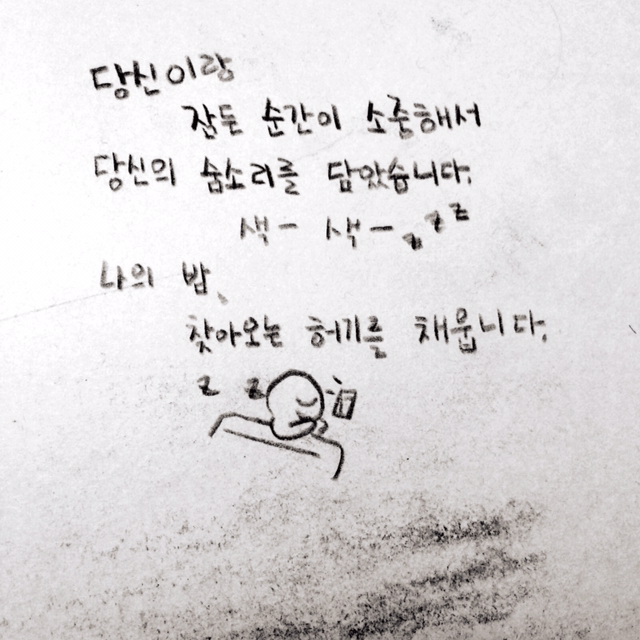 당신이랑
잠든 순간이 소중해서
당신의 숨소리를 담았습니다.
색- 색- z z z
나의 밤,
찾아오는 허기를 채웁니다.
z z